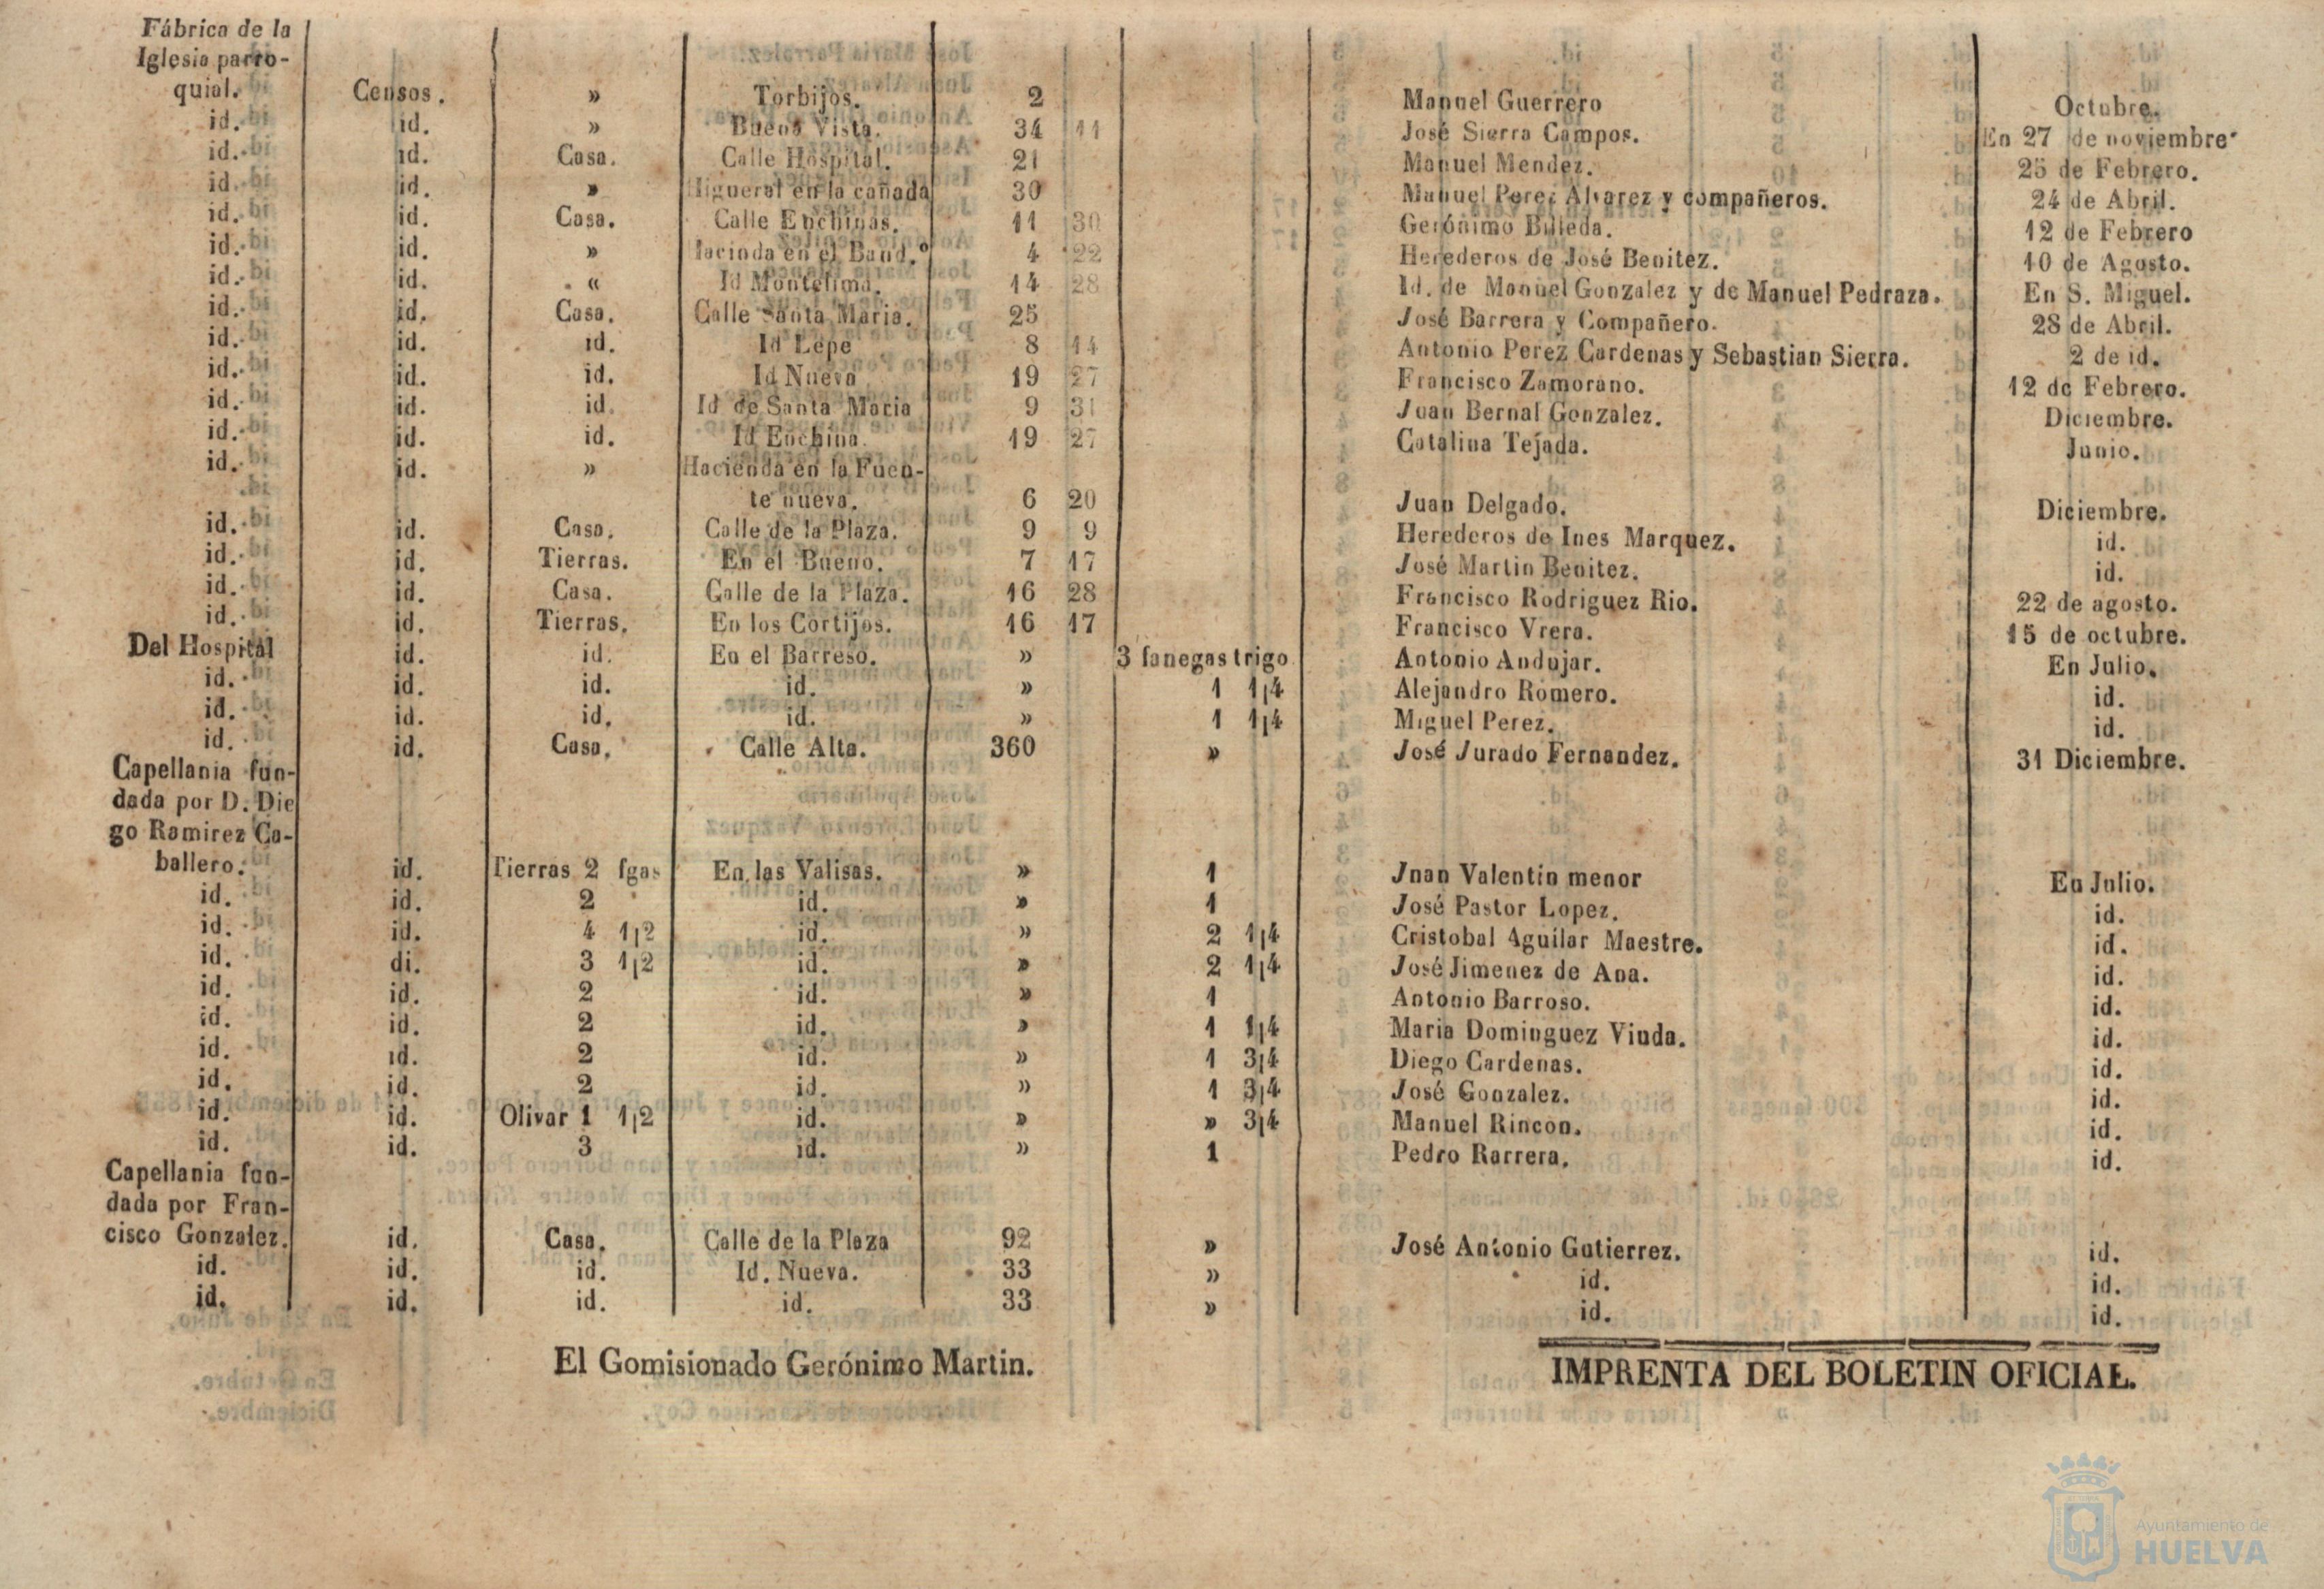 Fábrica de la
Iglesia parro-
quial. Censos. » Torbijos. 2 Manuel Guerrero Octubre.
id. id. » Buena Vista. 34 11 José Sierra Campos. En 27 de noviembre
id. id. Casa. Calle Hospital. 21 Manuel Mendez. 25 de Febrero.
id. id. » Higueral en la cañada 30 Manuel Perez Alvarez y compañeros. 24 de Abril.
id. id. Casa. Calle Enchinas. 11 30 Gerónimo Billeda. 12 de Febrero
id. id. » Hacinda en el Band.º 4 22 Herederos de José Benitez. 10 de Agosto.
id. id. « Id Montelima. 14 28 Id. de Manuel Gonzalez y de Manuel Pedraza. En S. Miguel.
id. id. Casa. Calle Santa Maria. 25 José Barrera y Compañero. 28 de Abril.
id. id. id. Id Lepe 8 14 Antonio Perez Cardenas y Sebastian Sierra. 2 de id.
id. id. id. Id Nueva 19 27 Francisco Zamorano. 12 de Febrero.
id. id. id. Id de Santa Maria 9 31 Juan Bernal Gonzalez. Diciembre.
id. id. id. Id Enchina. 19 27 Catalina Tejada. Junio.
id. id. » Hacienda en la Fuen-
te nueva. 6 20 Juan Delgado. Diciembre.
id. id. Casa. Calle de la Plaza. 9 9 Herederos de Ines Marquez. id.
id. id. Tierras. En el Bueno. 7 17 José Martin Benitez. id.
id. id. Casa. Calle de la Plaza. 16 28 Francisco Rodriguez Rio. 22 de agosto.
id. id. Tierras. En los Cortijos. 16 17 Francisco Vrera. 15 de octubre.
Del Hospital id. id. En el Barreso. » 3 fanegas trigo Antonio Andujar. En Julio.
id. id. id. id. » 1 1|4 Alejandro Romero. id.
id. id. id. id. » 1 1|4 Miguel Perez. id.
id. id. Casa. Calle Alta. 360 » José Jurado Fernandez. 31 Diciembre.
Capellania fun-
dada por D. Die
go Ramirez Ca-
ballero. id. Tierras 2 fgas En las Valisas. » 1 Jnan Valentin menor En Julio.
id. id. 2 id. » 1 José Pastor Lopez. id.
id. id. 4 1|2 id. » 2 1|4 Cristobal Aguilar Maestre. id.
id. di. 3 1|2 id. » 2 1|4 José Jimenez de Ana. id.
id. id. 2 id. » 1 Antonio Barroso. id.
id. id. 2 id. » 1 1|4 Maria Dominguez Viuda. id.
id. id. 2 id. » 1 3|4 Diego Cardenas. id.
id. id. 2 id. » 1 3|4 José Gonzalez. id.
id. id. Olivar 1 1|2 id. » » 3|4 Manuel Rincon. id.
id. id. 3 id. » 1 Pedro Rarrera. id.
Capellania fun-
dada por Fran-
cisco Gonzalez. id. Casa. Calle de la Plaza 92 » José Antonio Gutierrez. id.
id. id. id. Id. Nueva. 33 » id. id.
id. id. id. id. 33 » id. id.
El Gomisionado Gerónimo Martin.
IMPRENTA DEL BOLETIN OFICIAL.
Ayuntamiento de
HUELVA